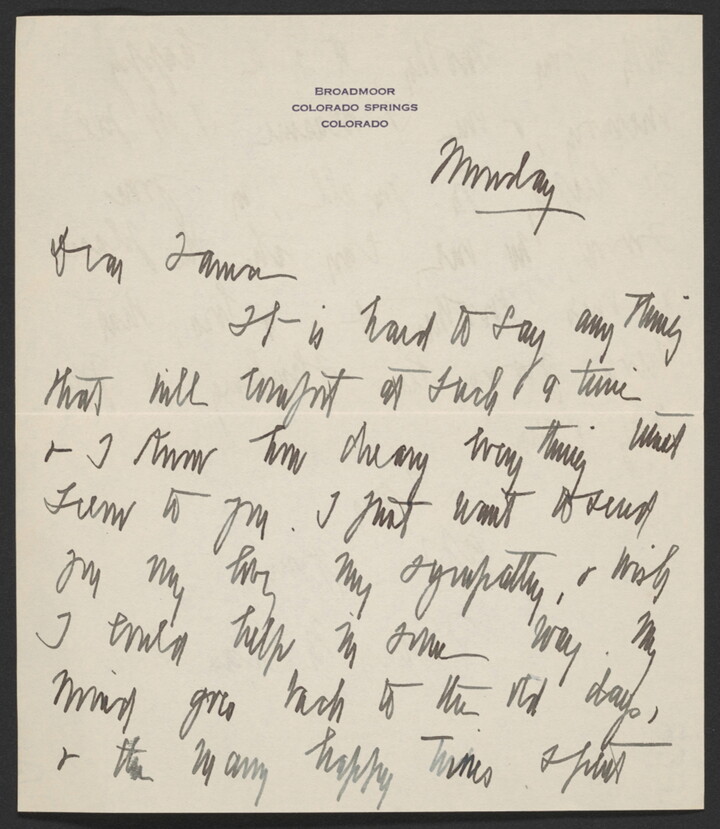 BROADMOOR
COLORADO SPRINGS
COLORADO
Monday
Dear
It is hard to say any thing
that will comfort at such a time
& I know how dreary every thing must
seem to you. I just want to send
you my love, my sympathy, & wish
I could help in some way. My
mind goes back to the old days,
& the many happy times spent